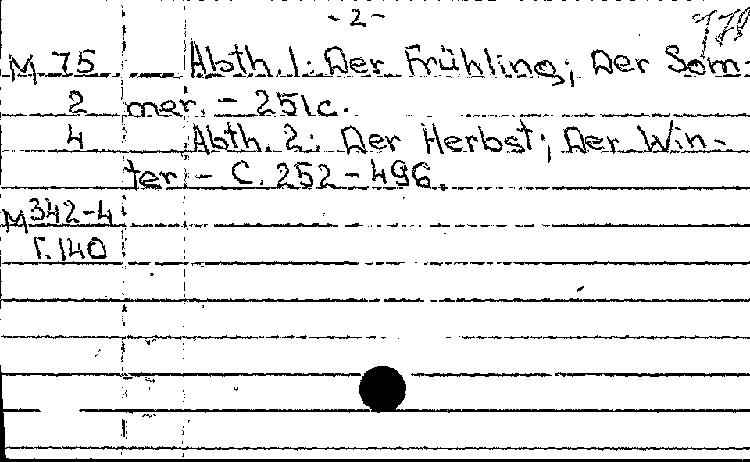 - 2 -
М 75 Abth. 1: Der Frühling; Der Som-
2 mer. - 251 c.
4 Abth. 2: Der Herbst; Der Win-
ter - С. 252-496.
М 342-4
Г. 140